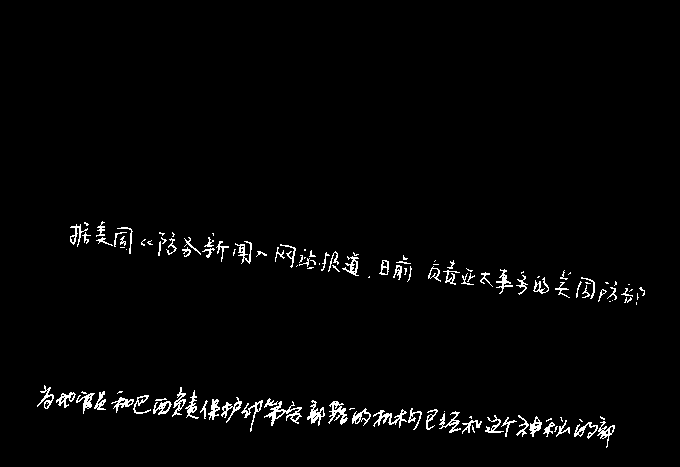 据美国《防务新闻》网站报道，日前 负责亚太事务的美国防部
当地官员和巴西负责保护印第安部落的机构已经和这个神秘的部